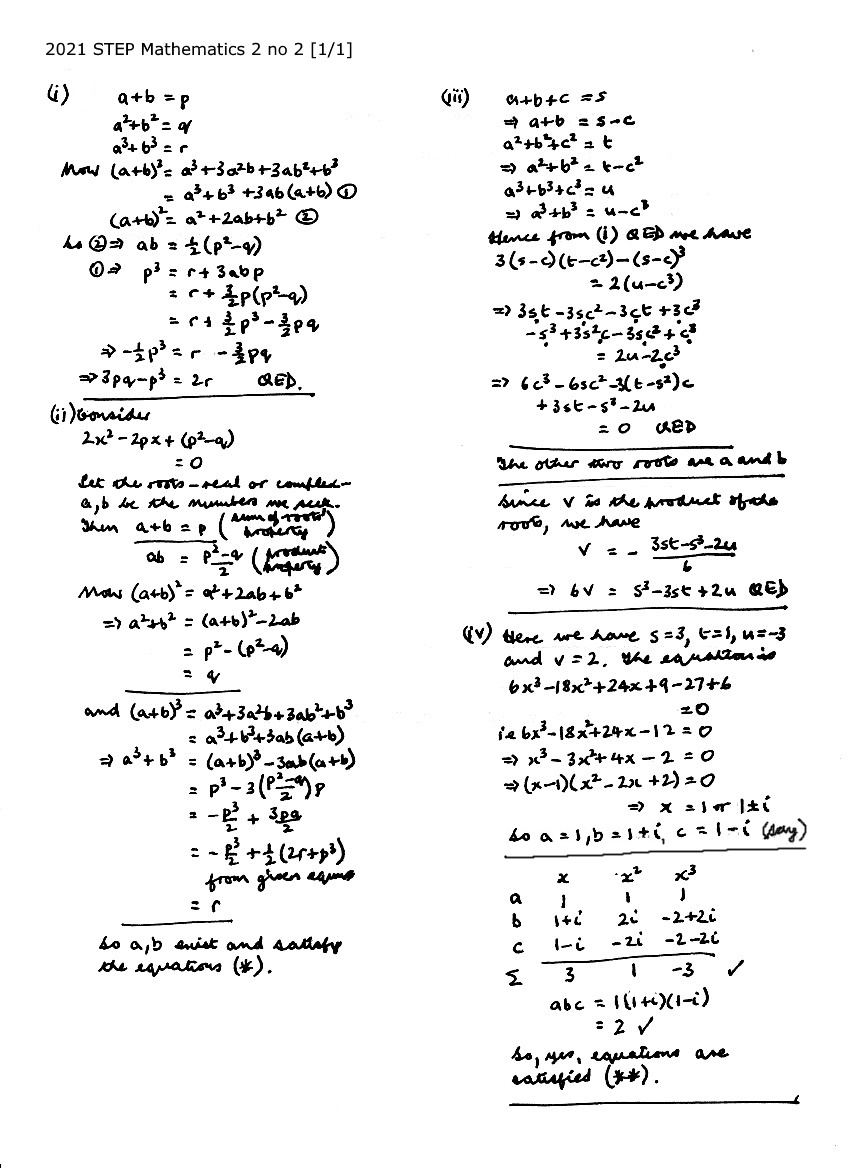 2021 STEP Mathematics 2 no 2 [1/1]
(i) a+b = p
a²+b² = q
a³+b³ = r
Now (a+b)³ = a³+3a²b+3ab²+b³
= a³+b³+3ab(a+b) ①
(a+b)² = a²+2ab+b² ②
So ②⇒ ab = ½(p²-q)
①⇒ p³ = r+3abp
= r+ 3/2 p(p²-q)
= r+ 3/2 p³ - 3/2 pq
⇒ -½p³ = r - 3/2 pq
⇒ 3pq-p³ = 2r QED.
(ii) Consider
2x²-2px+(p²-q)
= 0
Let the roots - real or complex -
a, b be the numbers we seek.
Then a+b = p (sum of roots' property)
ab = (p²-q)/2 (product property)
Now (a+b)² = a²+2ab+b²
⇒ a²+b² = (a+b)²-2ab
= p²-(p²-q)
= q
and (a+b)³ = a³+3a²b+3ab²+b³
= a³+b³+3ab(a+b)
⇒ a³+b³ = (a+b)³-3ab(a+b)
= p³-3((p²-q)/2)p
= -p³/2 + 3pq/2
= -p³/2 + ½(2r+p³)
from given eqns
= r
So a, b exist and satisfy
the equations (*).
(iii) a+b+c = s
⇒ a+b = s-c
a²+b²+c² = t
⇒ a²+b² = t-c²
a³+b³+c³ = u
⇒ a³+b³ = u-c³
Hence from (i) QED we have
3(s-c)(t-c²)-(s-c)³
= 2(u-c³)
⇒ 3st-3sc²-3ct+3c³
-s³+3s²c-3sc²+c³
= 2u-2c³
⇒ 6c³-6sc²-3(t-s²)c
+3st-s³-2u
= 0 QED
The other two roots are a and b
Since v is the product of the
roots, we have
v = - (3st-s³-2u)/6
⇒ 6v = s³-3st+2u QED
(iv) Here we have s=3, t=1, u=-3
and v=2. The equation is
6x³-18x²+24x+9-27+6
=0
ie 6x³-18x²+24x-12 = 0
⇒ x³-3x²+4x-2 = 0
⇒ (x-1)(x²-2x+2) = 0
⇒ x = 1 or 1±i
So a=1, b=1+i, c=1-i (say)
x x² x³
a 1 1 1
b 1+i 2i -2+2i
c 1-i -2i -2-2i
Σ 3 1 -3 ✓
abc = 1(1+i)(1-i)
= 2 ✓
So, yes, equations are
satisfied (**).